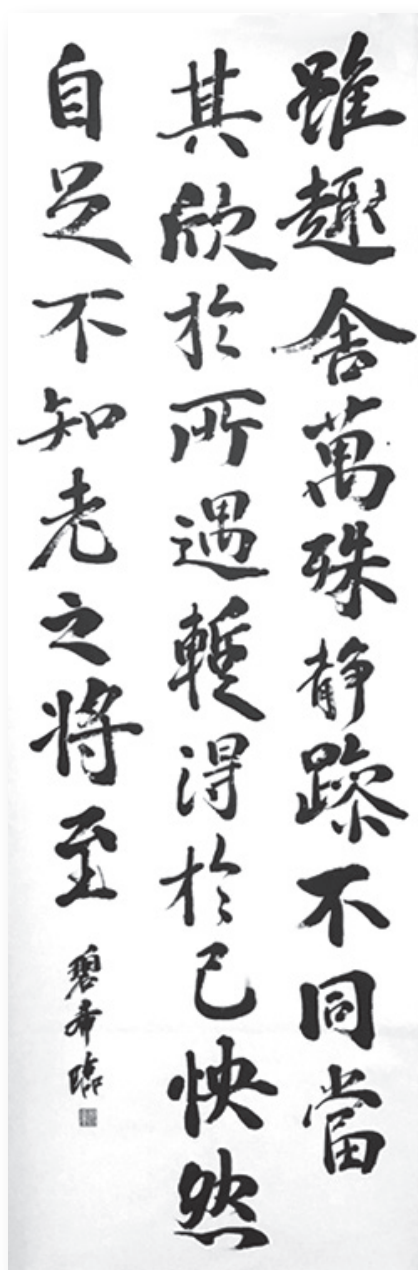 雖趣舍萬殊静躁不同當
其欣於所遇暫得於己怏然
自足不知老之將至
碧希臨